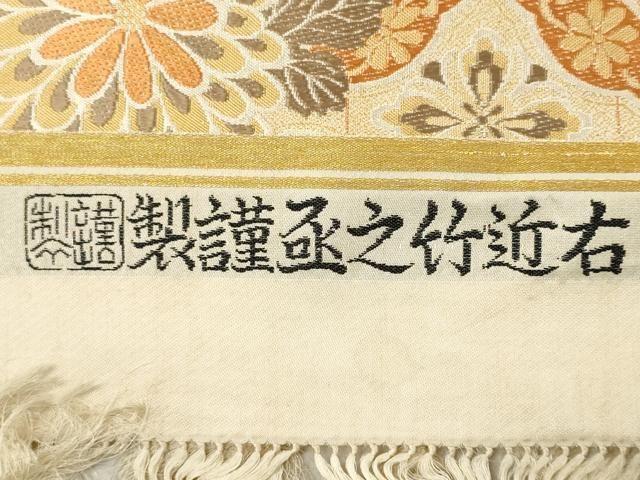 右近竹之丞謹製
謹製